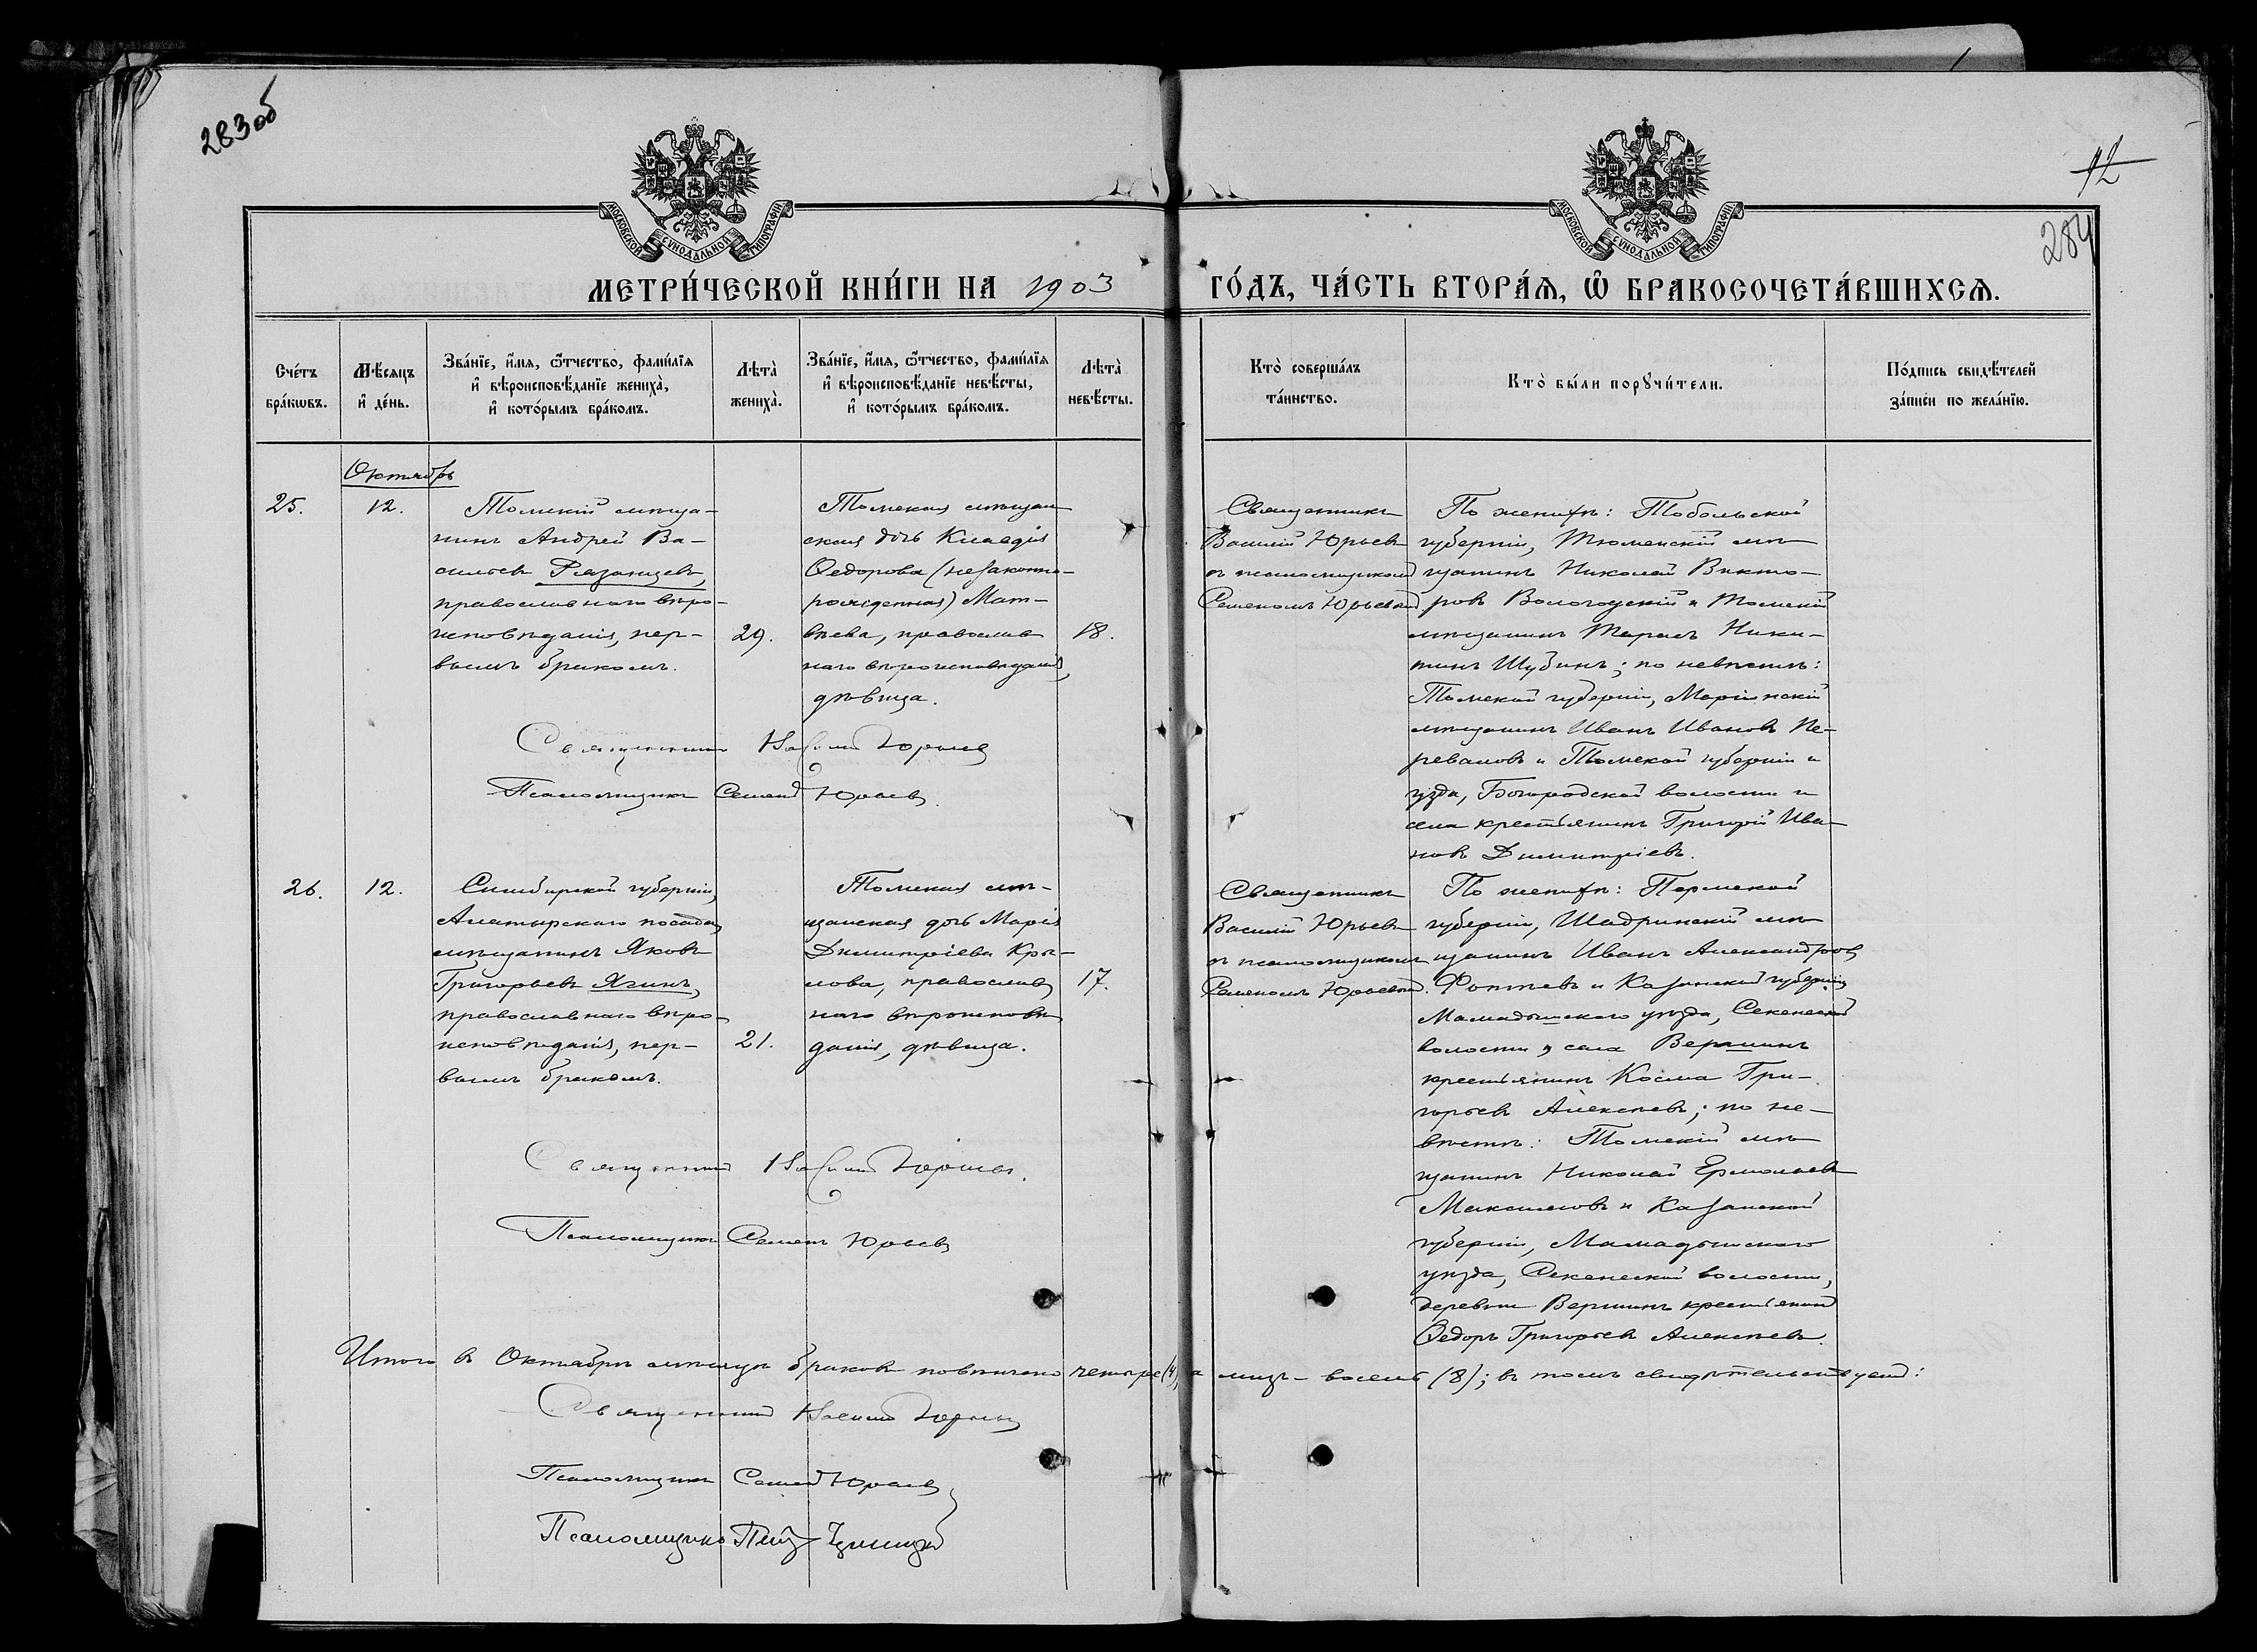 283об
12
284
МОСКОВСКОЙ СѴНОДАЛЬНОЙ ТИПОГРАФІИ
МОСКОВСКОЙ СѴНОДАЛЬНОЙ ТИПОГРАФІИ
МЕТРИ́ЧЕСКОЙ КНИ́ГИ НА 1903 ГО́ДЪ, ЧА́СТЬ ВТОРА́Ѧ, Ѡ҆ БРАКОСОЧЕТА́ВШИХСѦ.
Сче́тъ
бра́кѡвъ.
Мѣ́сяцъ
и҆ де́нь.
Зва́нїе, и҆́мѧ, ѻ҆́тчество, фами́лїѧ
и҆ вѣроисповѣ́данїе жениха̀,
и҆ кото́рымъ бра́комъ.
Лѣта̀
жениха̀.
Зва́нїе, и҆́мѧ, ѻ҆́тчество, фами́лїѧ
и҆ вѣроисповѣ́данїе невѣ́сты,
и҆ кото́рымъ бра́комъ.
Лѣта̀
невѣ́сты.
Кто̀ соверша́лъ
та́инство.
Кто̀ бы́ли порꙋчи́тели.
По́дпись свидѣ́телей
за́писи по жела́нїю.
Октябрь
25.
12.
Томскій мѣща-
нинъ Андрей Ва-
сильевъ Рязанцевъ,
православнаго вѣро-
исповѣданія, пер-
вымъ бракомъ.
29.
Томская мѣщан
ская дочь Клавдія
Ѳедорова (незаконно-
рожденная) Мат-
вѣева, православ
наго вѣроисповѣданія,
дѣвица.
18.
Священникъ
Василій Юрьевъ
съ псаломщикомъ
Семеномъ Юрьевымъ
По женихѣ: Тобольской
губерніи, Тюменскій мѣ
щанинъ Николай Викто-
ровъ Вологодскій и Томскій
мѣщанинъ Тарасъ Ники-
тинъ Шубинъ; по невѣстѣ:
Томской губерніи, Маріинскій
мѣщанинъ Иванъ Ивановъ Пе-
реваловъ и Томской губерніи и
уѣзда, Богородской волости и
села крестьянинъ Григорій Ива-
новъ Димитріевъ.
Священникъ Василій Юрьевъ
Псаломщикъ Семенъ Юрьевъ.
26.
12.
Симбирской губерніи,
Алатырскаго посада,
мѣщанинъ Яковъ
Григорьевъ Ягинъ,
православнаго вѣро-
исповѣданія, пер-
вымъ бракомъ.
21.
Томская мѣ-
щанская дочь Марія
Димитріева Кры-
лова, православ
наго вѣроисповѣ
данія, дѣвица.
17.
Священникъ
Василій Юрьевъ
съ псаломщикомъ
Семеномъ Юрьевымъ.
По женихѣ: Пермской
губерніи, Шадринскій мѣ
щанинъ Иванъ Александровъ
Фотѣевъ и Казанской губерніи,
Мамадышскаго уѣзда, Секенеской
волости, села Вершинъ
крестьянинъ Косма Гри-
горьевъ Алексѣевъ; по не-
вѣстѣ: Томскій мѣ
щанинъ Николай Ермолаевъ
Максимовъ и Казанской
губерніи, Мамадышскаго
уѣзда, Секенеской волости,
деревни Вершинъ крестьянинъ
Ѳедоръ Григорьевъ Алексѣевъ.
Священникъ Василій Юрьевъ.
Псаломщикъ Семенъ Юрьевъ
Итого въ Октябрѣ мѣсяцѣ браковъ повѣнчано четыре (4), а лицъ - восемь (8); въ томъ свидѣтельствуемъ:
Священникъ Василій Юрьевъ
Псаломщикъ Семенъ Юрьевъ
Псаломщикъ